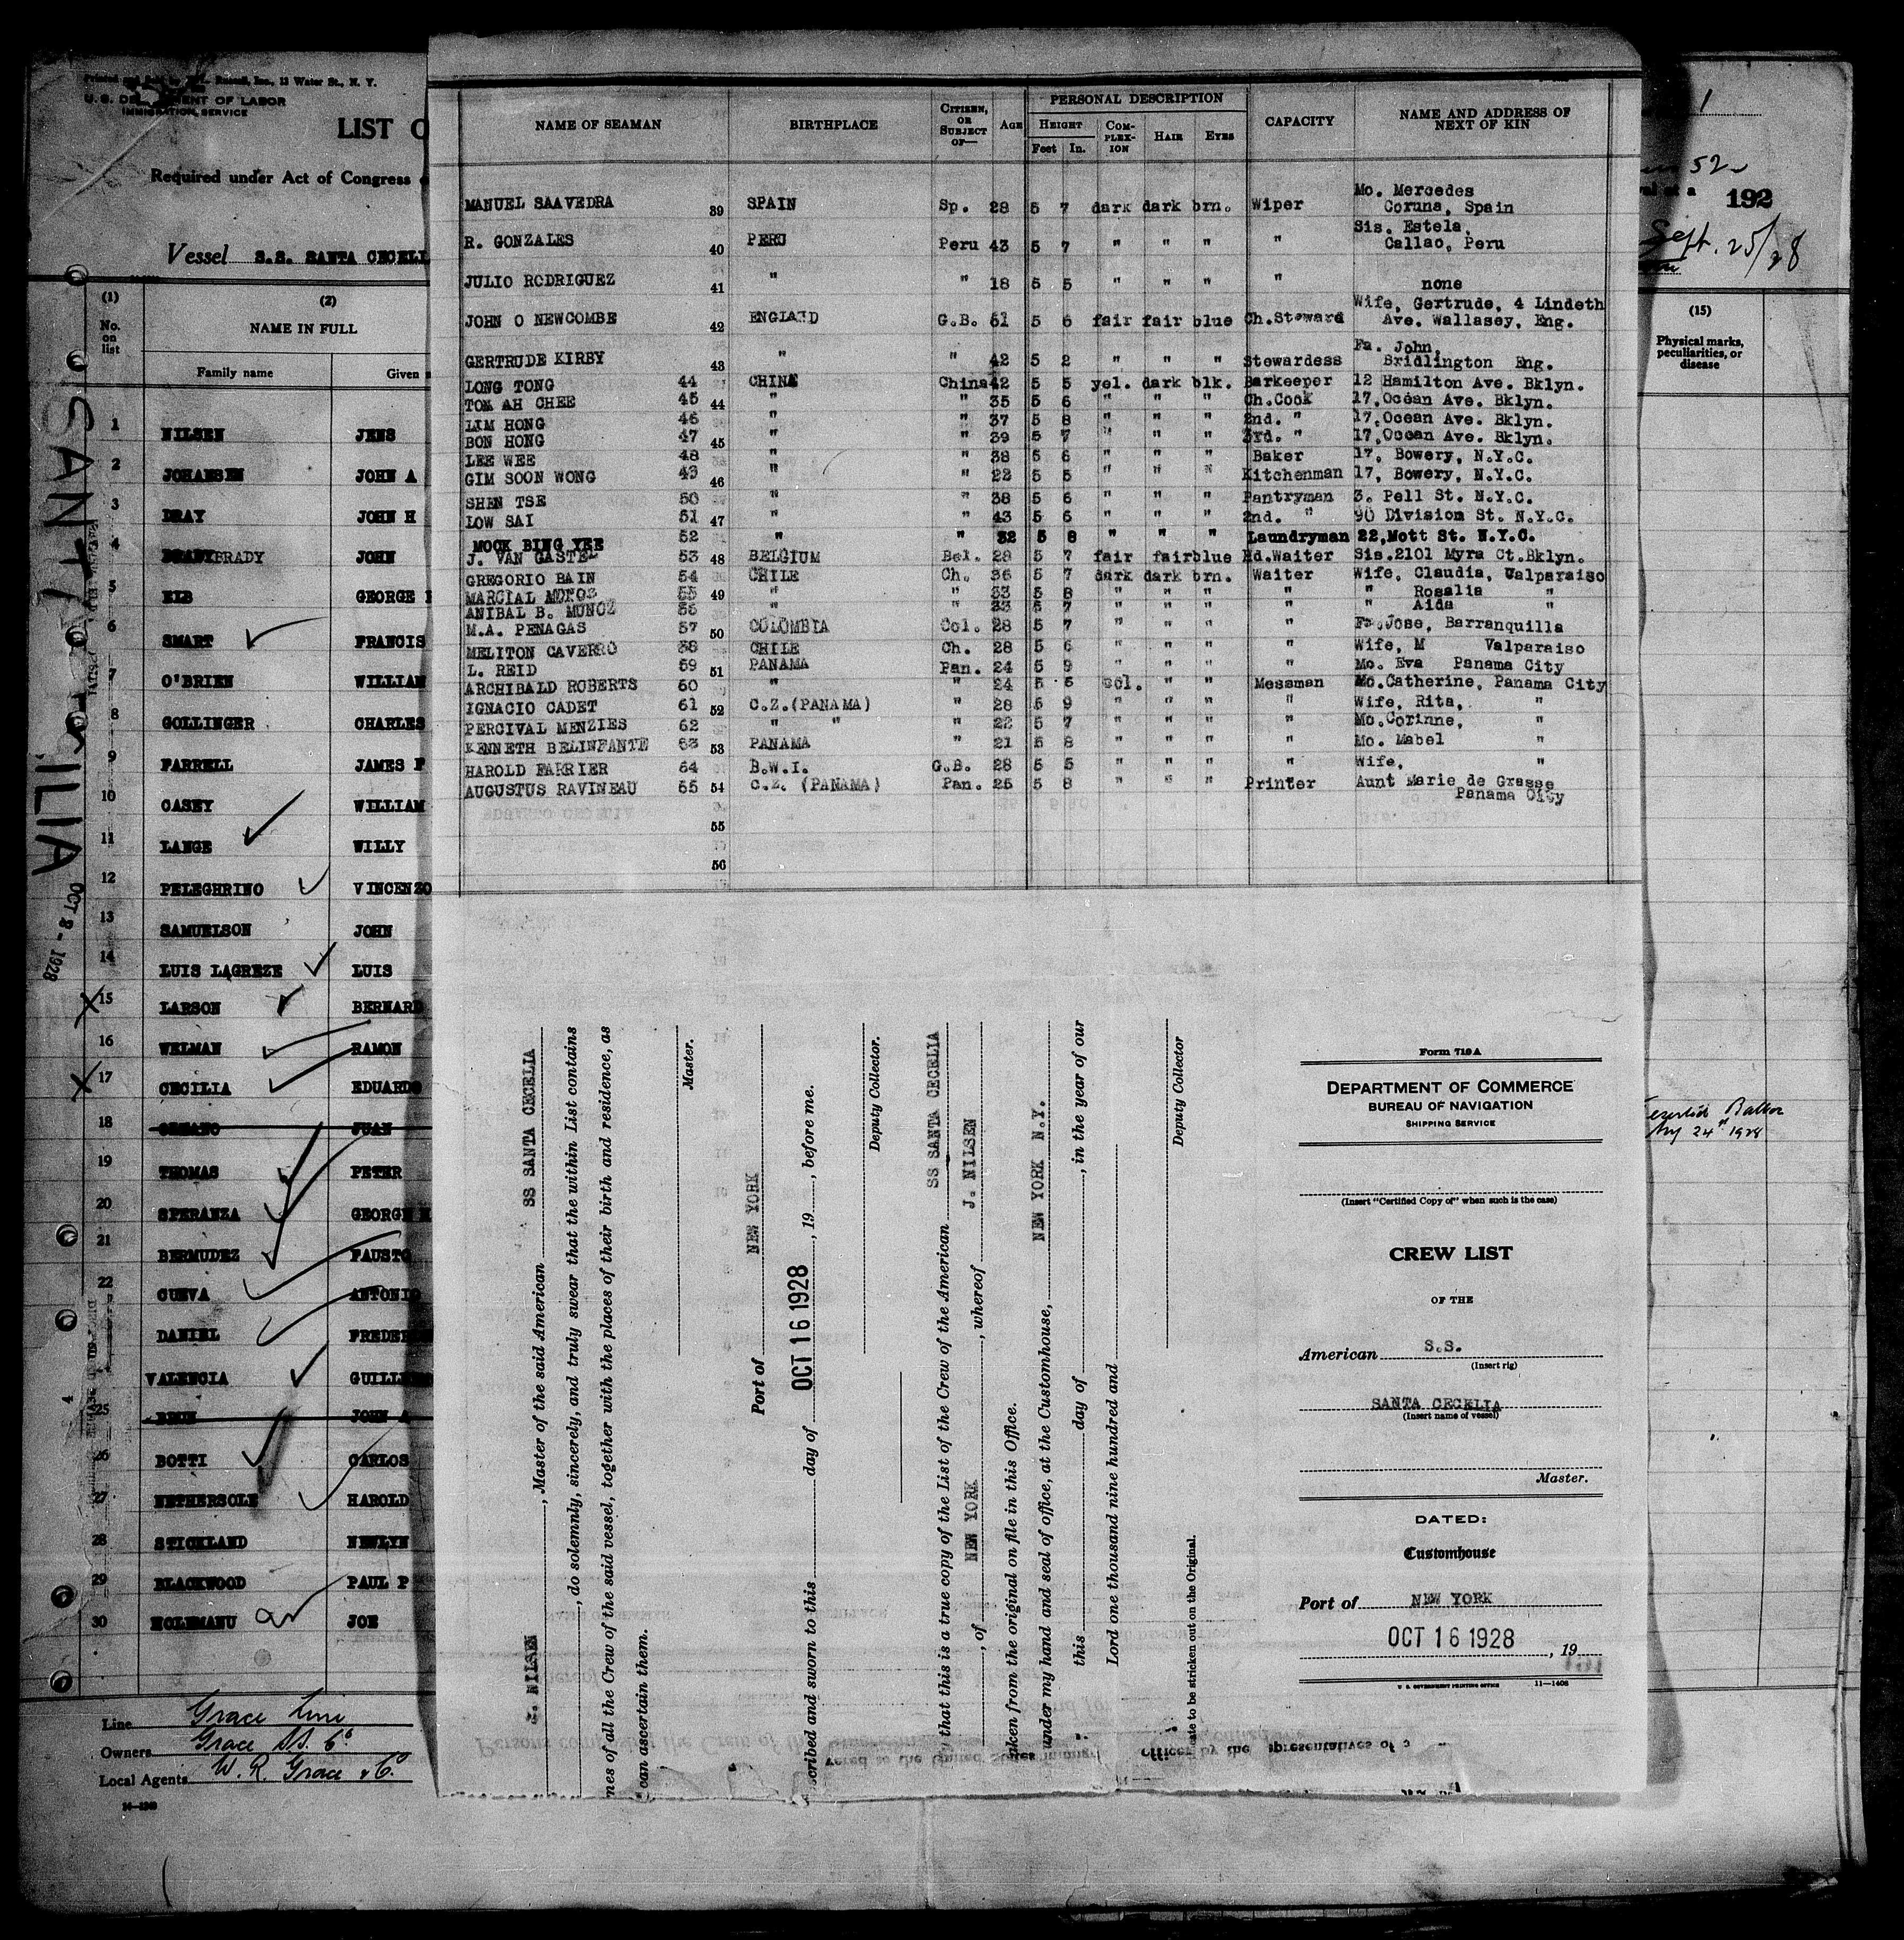 Printed and Sold by Russell, Inc., 13 Water St., N. Y.
U. S. DEPARTMENT OF LABOR
IMMIGRATION SERVICE
LIST O
Required under Act of Congress
Vessel S.S. SANTA CECELI
(1) (2)
No. on list NAME IN FULL
Family name Given
1 NILSEN JENS
2 JOHANSEN JOHN A
3 DRAY JOHN H
4 BRADY JOHN
5 ELB GEORGE
6 SMART FRANCIS
7 O'BRIEN WILLIAM
8 GOLLINGER CHARLES
9 FARRELL JAMES F
10 CASEY WILLIAM
11 LANGE WILLY
12 PELEGHRINO VINCENZO
13 SAMUELSON JOHN
14 LUIS LAGREZE LUIS
X 15 LARSON BERNARD
16 WELMAN RAMON
X 17 CECILIA EDUARDO
18 JUAN
19 THOMAS PETER
20 SPERANZA GEORGE
21 BERMUDEZ FAUSTO
22 CUEVA ANTONIO
DANIEL FREDER
VALENCIA GUILL
25 JOHN A
26 BOTTI CARLOS
27 NETHERSOLE HAROLD
28 STICKLAND NEWLYN
29 BLACKWOOD PAUL P
30 HOLEMANU JOE
Line Grace Line
Owners Grace S.S. Co
Local Agents W. R. Grace & Co
OCT 2 - 1928
NAME OF SEAMAN BIRTHPLACE CITIZEN, OR SUBJECT OF— AGE PERSONAL DESCRIPTION CAPACITY NAME AND ADDRESS OF NEXT OF KIN
HEIGHT COMPLEXION HAIR EYES
Feet In.
Mo. Mercedes
MANUEL SAAVEDRA 39 SPAIN Sp. 28 5 7 dark dark brn. Wiper Coruna, Spain
Sis. Estela,
R. GONZALES 40 PERU Peru 43 5 7 " " " " Callao, Peru
JULIO RODRIGUEZ 41 " " 18 5 5 " " " " none
Wife, Gertrude, 4 Lindeth
JOHN O NEWCOMBE 42 ENGLAND G.B. 51 5 6 fair fair blue Ch.Steward Ave. Wallasey, Eng.
Fa. John,
GERTRUDE KIRBY 43 " " 42 5 2 " " " Stewardess Bridlington Eng.
LONG TONG 44 CHINA China 42 5 5 yel. dark blk. Barkeeper 12 Hamilton Ave. Bklyn.
TOM AH CHEE 45 44 " " 35 5 6 " " " Ch.Cook 17,Ocean Ave. Bklyn.
LIM HONG 46 " " 37 5 8 " " " 2nd. " 17,Ocean Ave. Bklyn.
BON HONG 47 45 " " 39 5 7 " " " 3rd. " 17,Ocean Ave. Bklyn.
LEE WEE 48 " " 38 5 6 " " " Baker 17, Bowery, N.Y.C.
GIM SOON WONG 49 46 " " 22 5 5 " " " Kitchenman 17, Bowery, N.Y.C.
SHEN TSE 50 " " 38 5 6 " " " Pantryman 3. Pell St. N.Y.C.
LOW SAI 51 47 " " 43 5 6 " " " 2nd. " 90 Division St. N.Y.C.
MOCK BING YEE 52 " " 32 5 8 " " " Laundryman 22,Mott St. N.Y.C.
J. VAN GASTEL 53 48 BELGIUM Bel. 29 5 7 fair fair blue Hd.Waiter Sis.2101 Myra Ct.Bklyn.
GREGORIO BAIN 54 CHILE Ch. 36 5 7 dark dark brn. Waiter Wife, Claudia, Valparaiso
MARCIAL MUNOZ 55 49 " " 33 5 8 " " " " " Rosalia "
ANIBAL B. MUNOZ 56 " " 33 5 7 " " " " " Aida "
M.A. PENAGAS 57 50 COLOMBIA Col. 28 5 7 " " " " Fa.Jose, Barranquilla
MELITON CAVERRO 58 CHILE Ch. 28 5 6 " " " " Wife, M Valparaiso
L. REID 59 51 PANAMA Pan. 24 5 9 " " " " Mo. Eva Panama City
ARCHIBALD ROBERTS 60 " " 24 5 6 col. " " Messman Mo.Catherine, Panama City
IGNACIO CADET 61 52 C.Z.(PANAMA) " 28 5 9 " " " " Wife, Rita, "
PERCIVAL MENZIES 62 " " " 22 5 7 " " " " Mo.Corinne, "
KENNETH BELINFANTE 63 53 PANAMA " 21 5 8 " " " " Mo. Mabel "
HAROLD FARRIER 64 B.W.I. G.B. 28 5 5 " " " " Wife, "
AUGUSTUS RAVINEAU 65 54 C.Z. (PANAMA) Pan. 25 5 8 " " " Printer Aunt Marie de Grasse
Panama City
55
56
J. NILSEN, Master of the said American SS SANTA CECELIA
, do solemnly, sincerely, and truly swear that the within List contains
mes of all the Crew of the said vessel, together with the places of their birth and residence, as
can ascertain them.
Master.
Port of NEW YORK
scribed and sworn to this day of OCT 16 1928, 19, before me.
Deputy Collector.
that this is a true copy of the List of the Crew of the American SS SANTA CECELIA
, of NEW YORK, whereof J. NILSEN
aken from the original on file in this Office.
under my hand and seal of office, at the Customhouse, NEW YORK N.Y.
this day of, in the year of our
Lord one thousand nine hundred and
Deputy Collector
cate to be stricken out on the Original.
Form 719 A
DEPARTMENT OF COMMERCE
BUREAU OF NAVIGATION
SHIPPING SERVICE
(Insert "Certified Copy of" when such is the case)
CREW LIST
OF THE
American S.S.
(Insert rig)
SANTA CECELIA
(Insert name of vessel)
Master.
DATED:
Customhouse
Port of NEW YORK
OCT 16 1928, 19
U. S. GOVERNMENT PRINTING OFFICE 11—1408
officer by the representatives of
1
52
192
Sept. 25/28
(15)
Physical marks, peculiarities, or disease
24 1928